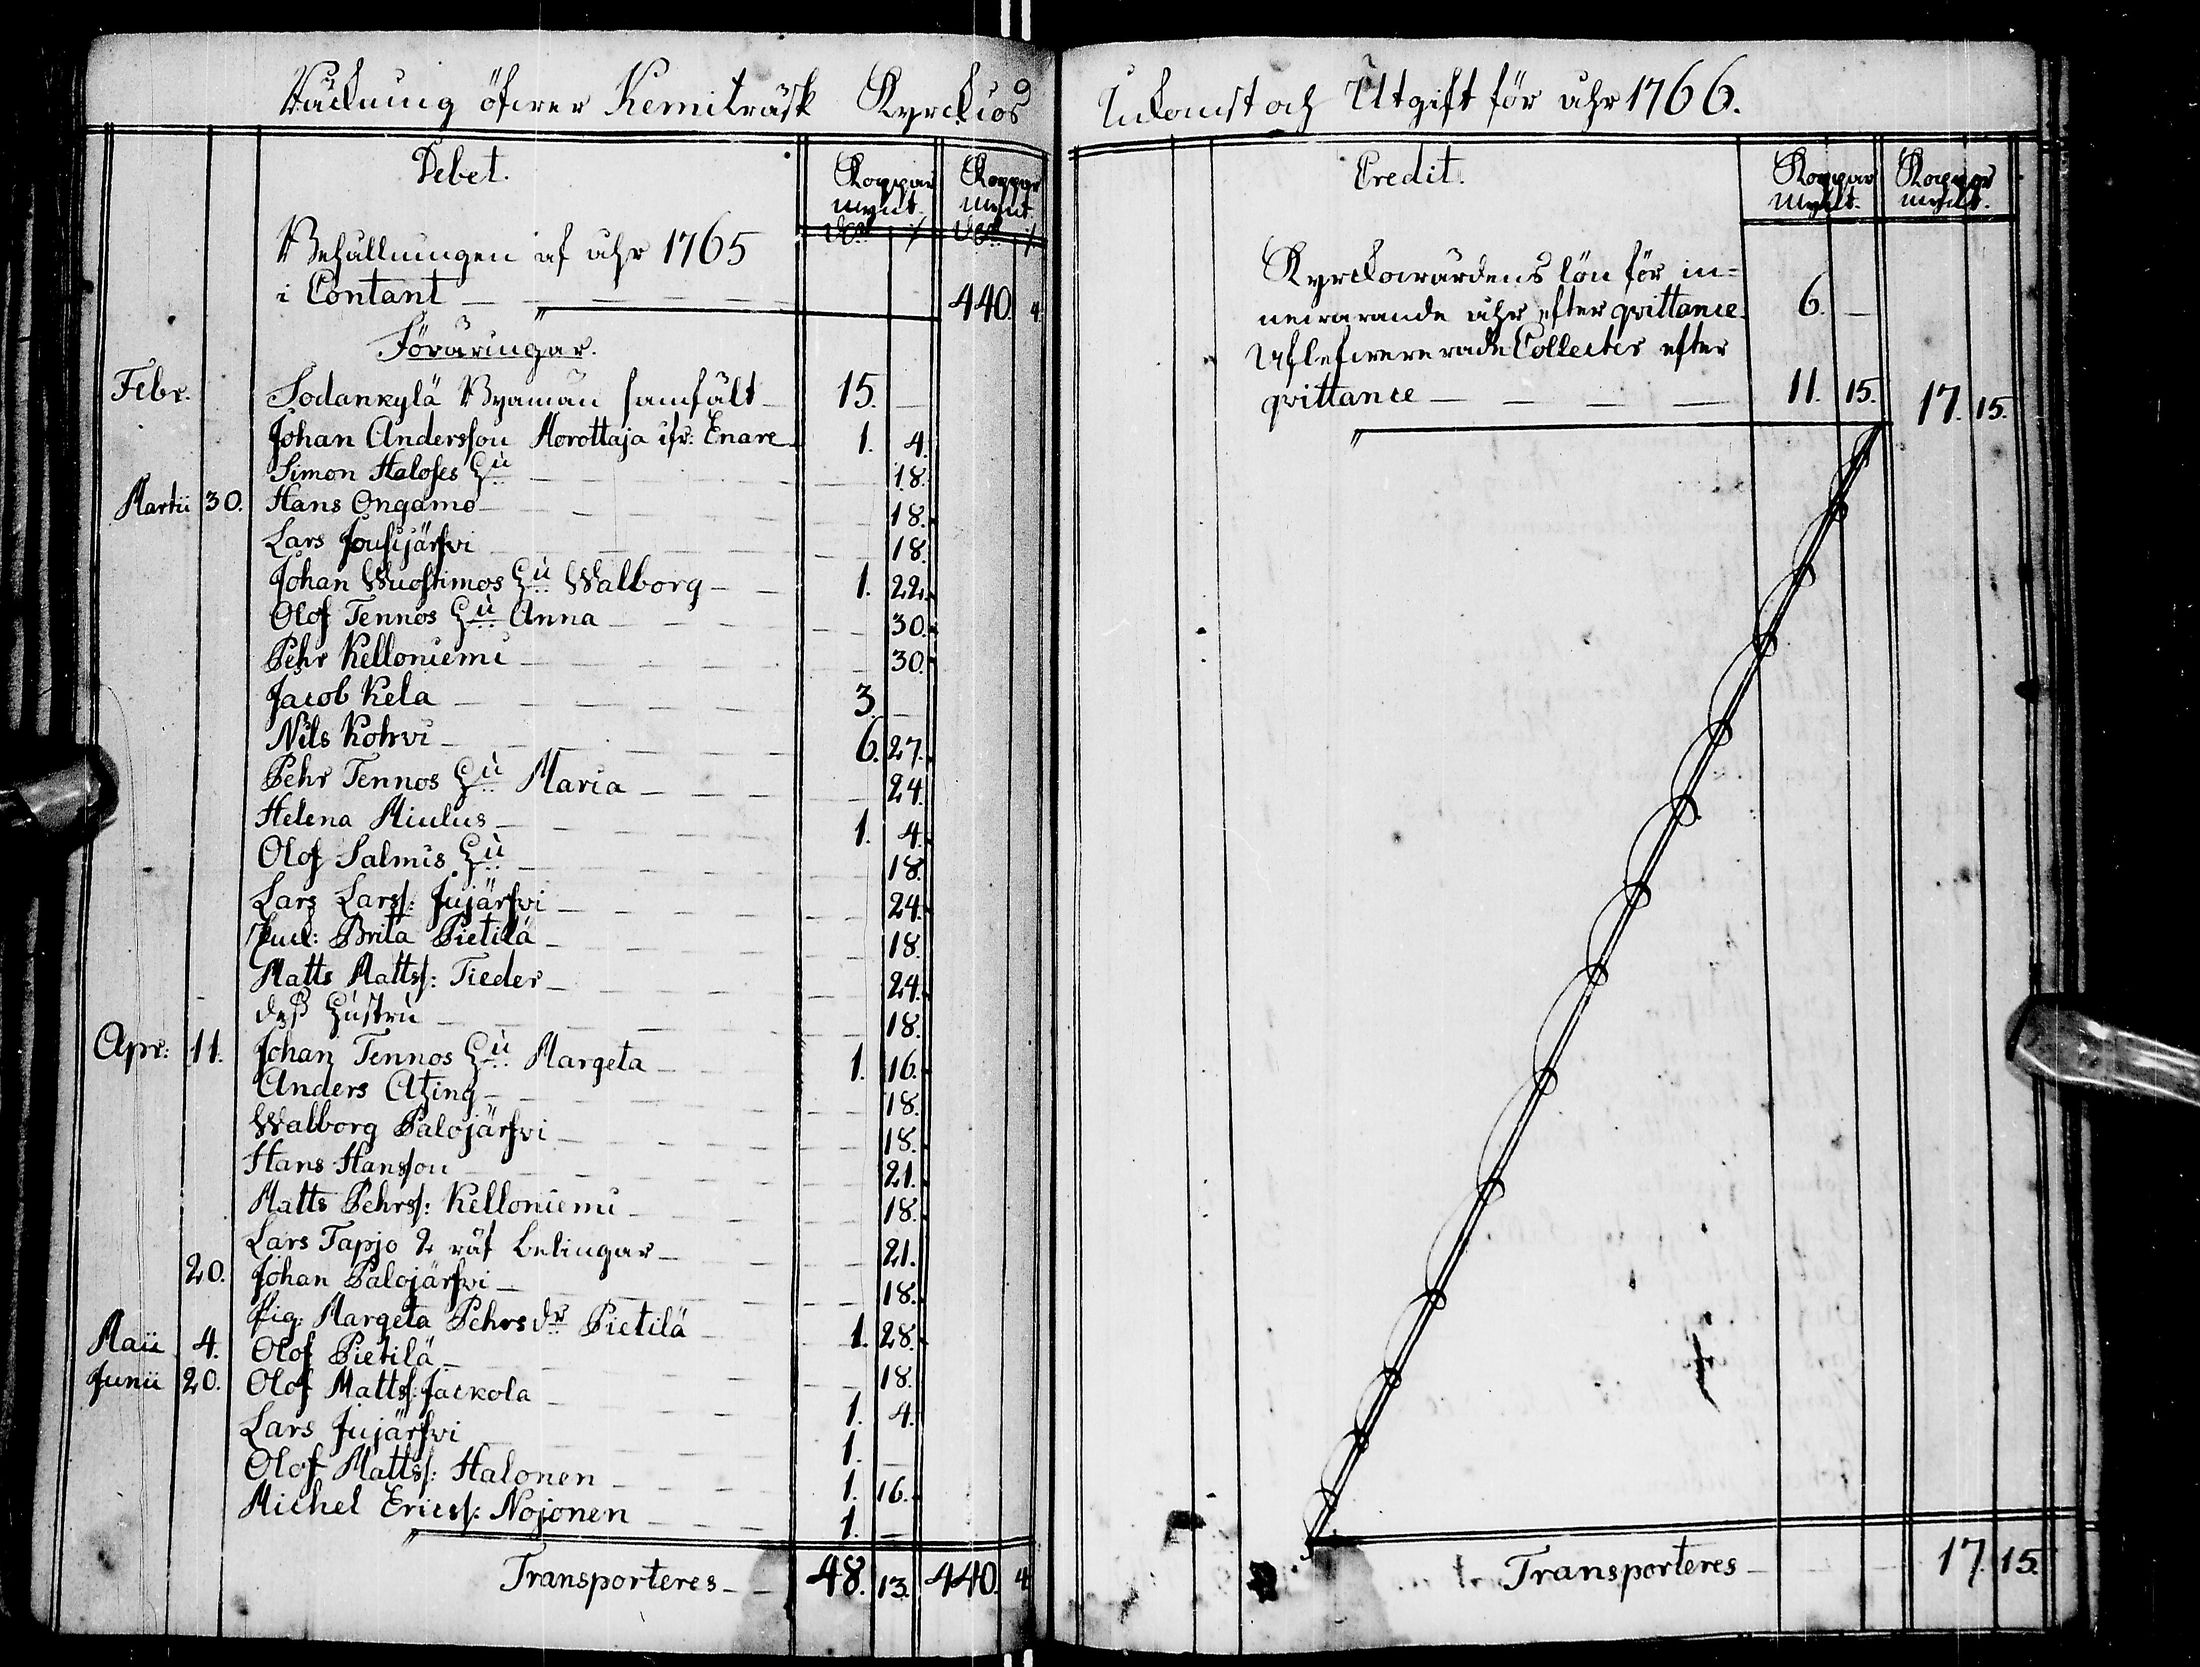 Räckning öfwer Kemiträsk Kyrckios
Debet.
Koppar mynt. Koppar mynt
Behållningen af åhr 1765
i Contant — 440. 4.
Föräringar.
Febr. Sodankylä Byamän samfält 15. —
Johan Andersson Morottaja ifr: Enare 1. 4.
Simon Haloses Hu 18.
Martii 30. Hans Ongamo 18.
Lars Jousijärfwi 18.
Johan Wuostimos Hu Walborg 1. 22.
Olof Tennos Hu Anna 30.
Pehr Kelloniemi 30.
Jacob Kela 3. —
Nils Kohvi 6. 27.
Pehr Tennos Hu Maria 24.
Helena Miulus 1. 4.
Olof Salmis Hu 18.
Lars Larss: Jujärfwi 24.
Brita Pietilä 18.
Matts Mattss: Tieder 24.
dess Hustru 18.
Apr: 11. Johan Tennos Hu Margeta 1. 16.
Anders Atzing 18.
Walborg Palojärfwi 18.
Hans Hansson 21.
Matts Pehrss: Kelloniemi 18.
Lars Tapio 2 räf belingar 21.
20. Johan Palojärfwi 18.
Pig: Margeta Pehrs dr Pietilä 1. 28.
Maii 4. Olof Pietilä 18.
Junii 20. Olof Mattss: Jackola 1. 4.
Lars Jujärfwi 1. —
Olof Mattss: Halonen 1. 16.
Michel Ericss: Nojonen 1. —
Transporteres 48. 13. 440. 4
Inkomst och Utgift för åhr 1766.
Credit.
Koppar mynt. Koppar mynt.
Kyrckowärdens lön för in=
newarande åhr efter qvittance. 6. —
Aflefwererade Collecter efter
qvittance 11. 15. 17. 15.
Transporteres 17. 15.